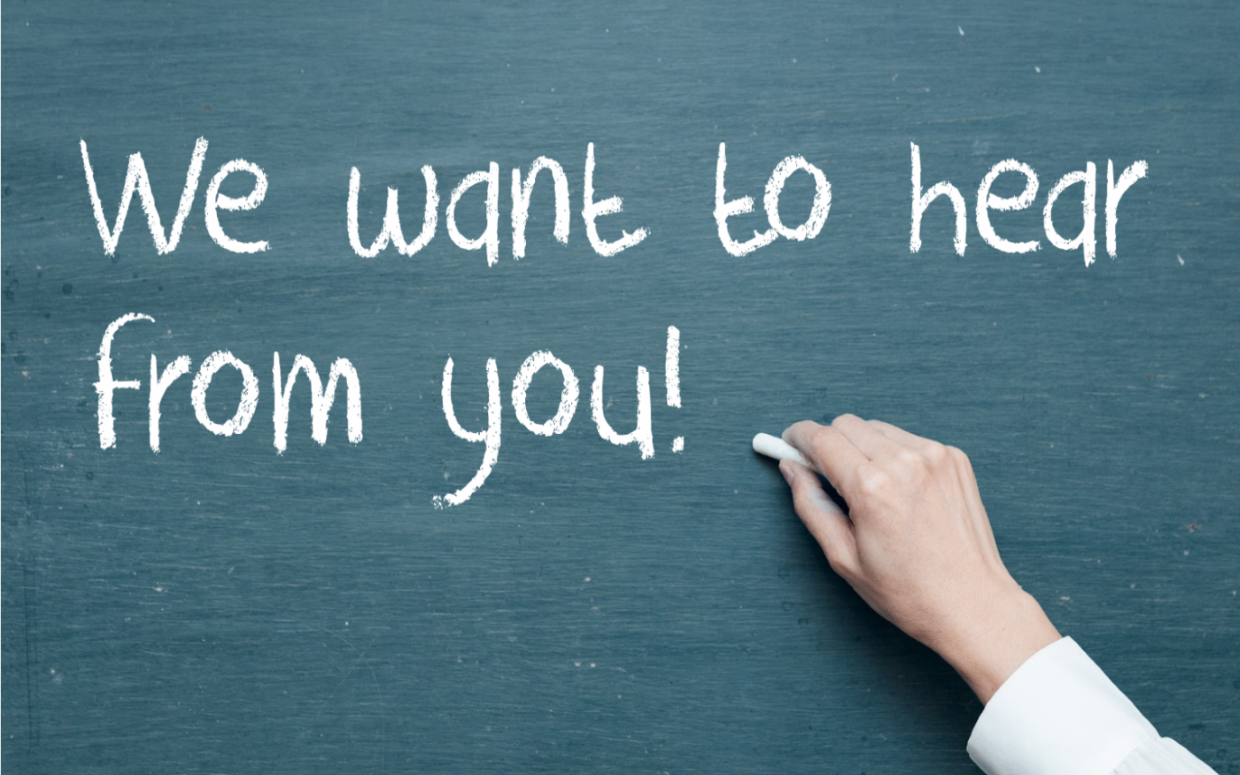 We want to hear
from you!